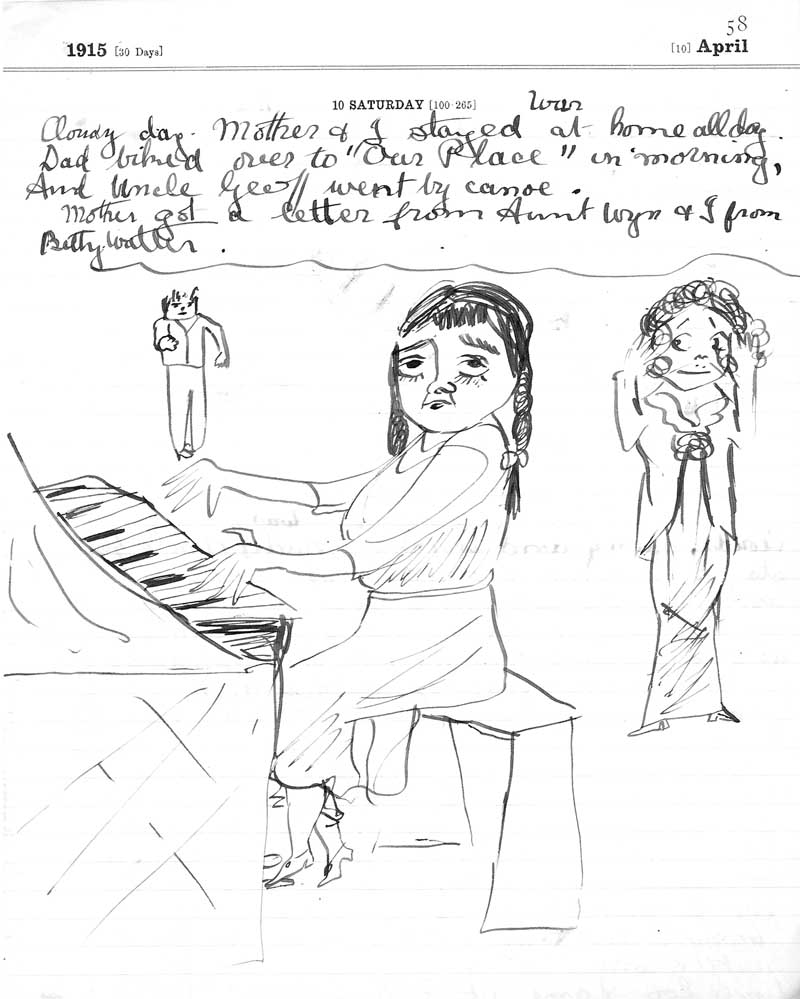 58
1915 [30 Days] [10] April
10 SATURDAY [100-265] War
Cloudy day. Mother & I stayed at home all day.
Dad biked over to "Our Place" in morning,
And Uncle Geoff went by canoe.
Mother got a letter from Aunt Wyn & I from
Betty Walter.